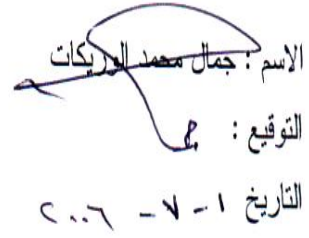 الاسم : جمال محمد الوريكات
التوقيع :
التاريخ ١ - ٧ - ٢٠٠٦